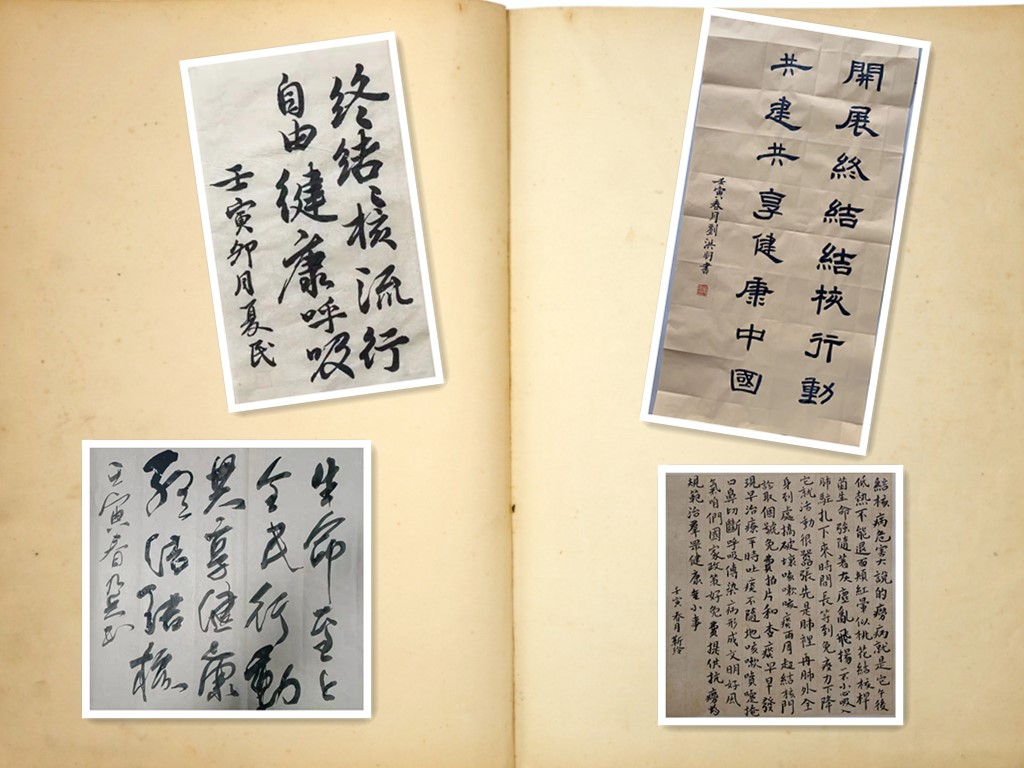 终结〻核流行
自由健康呼吸
壬寅卯月夏民
開展終結結核行動
共建共享健康中國
壬寅春月劉洪羽書
生命至上
全民行動
共享健康
终结结核
壬寅春
結核病危害大說的癆病就是它午後
低热不能退面頰紅暈似桃花結核桿
菌生命強隨著灰塵亂飛揚一不小心吸入
肺駐扎下來時間長等到免疫力下降
它就活動很囂張先是肺裡再肺外全
身到處搞破壞咳嗽咳痰兩周赶結核門
診取個號免費拍片和查痰早早發
現早治療平時吐痰不隨地咳嗽噴嚏掩
口鼻切斷呼吸傳染病形成文明好風
氣咱們國家政策好免費提供抗癆药
規範治健康小事
壬寅春月